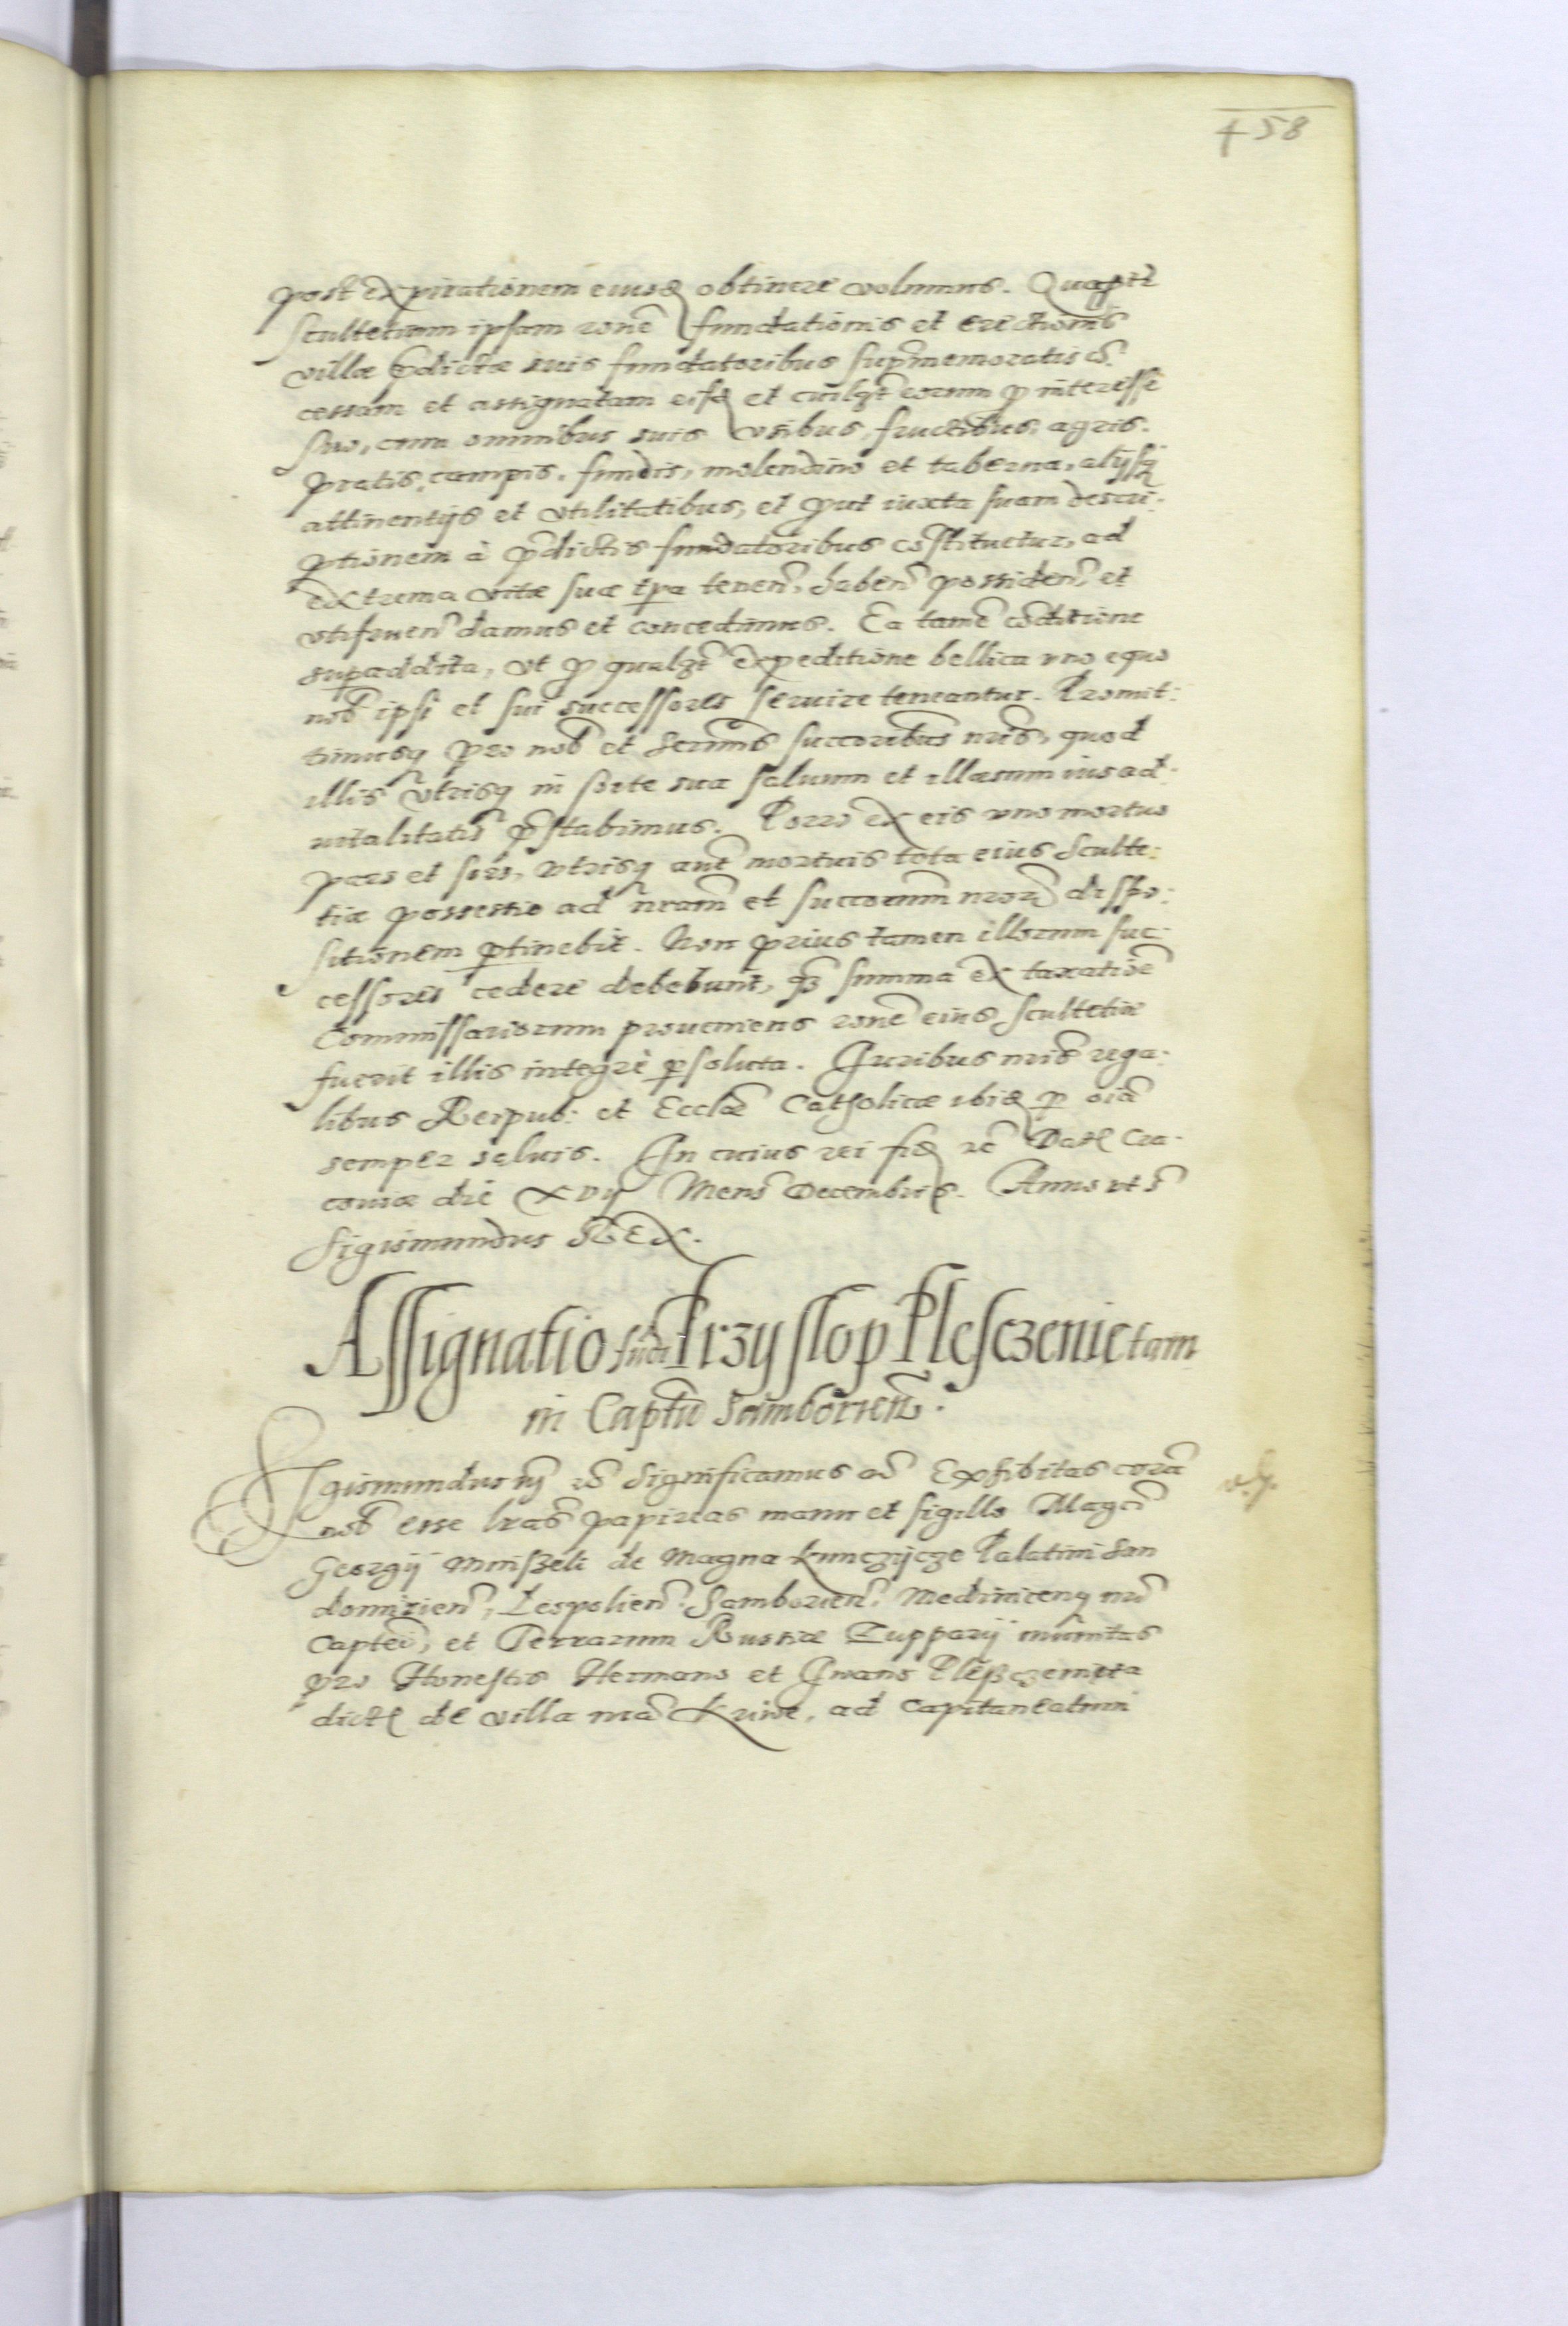 458
post expirationem eiusd obtinere volumus. Quapptr
scultetiam ipsam rone fundationis et erectionis
villæ pdictæ suis fundatoribus supmemoratis co˜
cessam et assignatam eisd et cuilzt eorum p interesse
suo, cum omnibus suis vsibus, fructibus, agris.
pratis, campis, fundis, molendino et taberna, alijsq
attinentijs et vtilitatibus, et put iuxta suam descri:
ptionem à pdictis fundatoribus costituetur, ad
extrema vitæ suæ tpa tenen, haben possiden, et
vtifruen damus et concedimus. Ea tame coditione
supaddita, vt p qualzt expeditione bellica vno equo
nob ipsi et sui successores seruire teneantur. Promit:
timusq pro nob et Serenmis succoribus nris, quod
illis vtrisq in sorte sua saluum et illæsum ius ad:
uitalitatis pstabimus. Porro ex eis vno mortuo
pars et sors, vtrisq aut mortuis tota eius Sculte:
tiæ possessio ad nram et succorum nror dispo:
sitionem ptinebit. Non prius tamen illorum suc:
cessores cedere debebunt, qm summa ex taxatione
Commissariorum proueniens rone eius scultetiæ
fuerit illis integrè psoluta. Iuribus nris rega:
libus Reipub: et Ecclæ Catholicæ ibid p oia
semper saluis. In cuius rei fid re Dat Cra:
couiæ die XVIJ Mens Decembris. Anno vt s
Sigismundus REX.
Assignatio fudi Przysłop Plesczenictam
in Captu Samborien.
Sigismundus iij rs Significamus es Exhibitas cora
nob esse lras papireas manu et sigillo Magci
Georgij Mniszeli de Magna kunczijcze Palatini San
domirien, Leopolien: Samborien: Medinicenq nri
Captei, et Terrarum Russiæ Zupparij munitas
pro Honestis Hermano et Iwano Pleßczenicta
dict de villa nra Kriwe, ad Capitaneatum